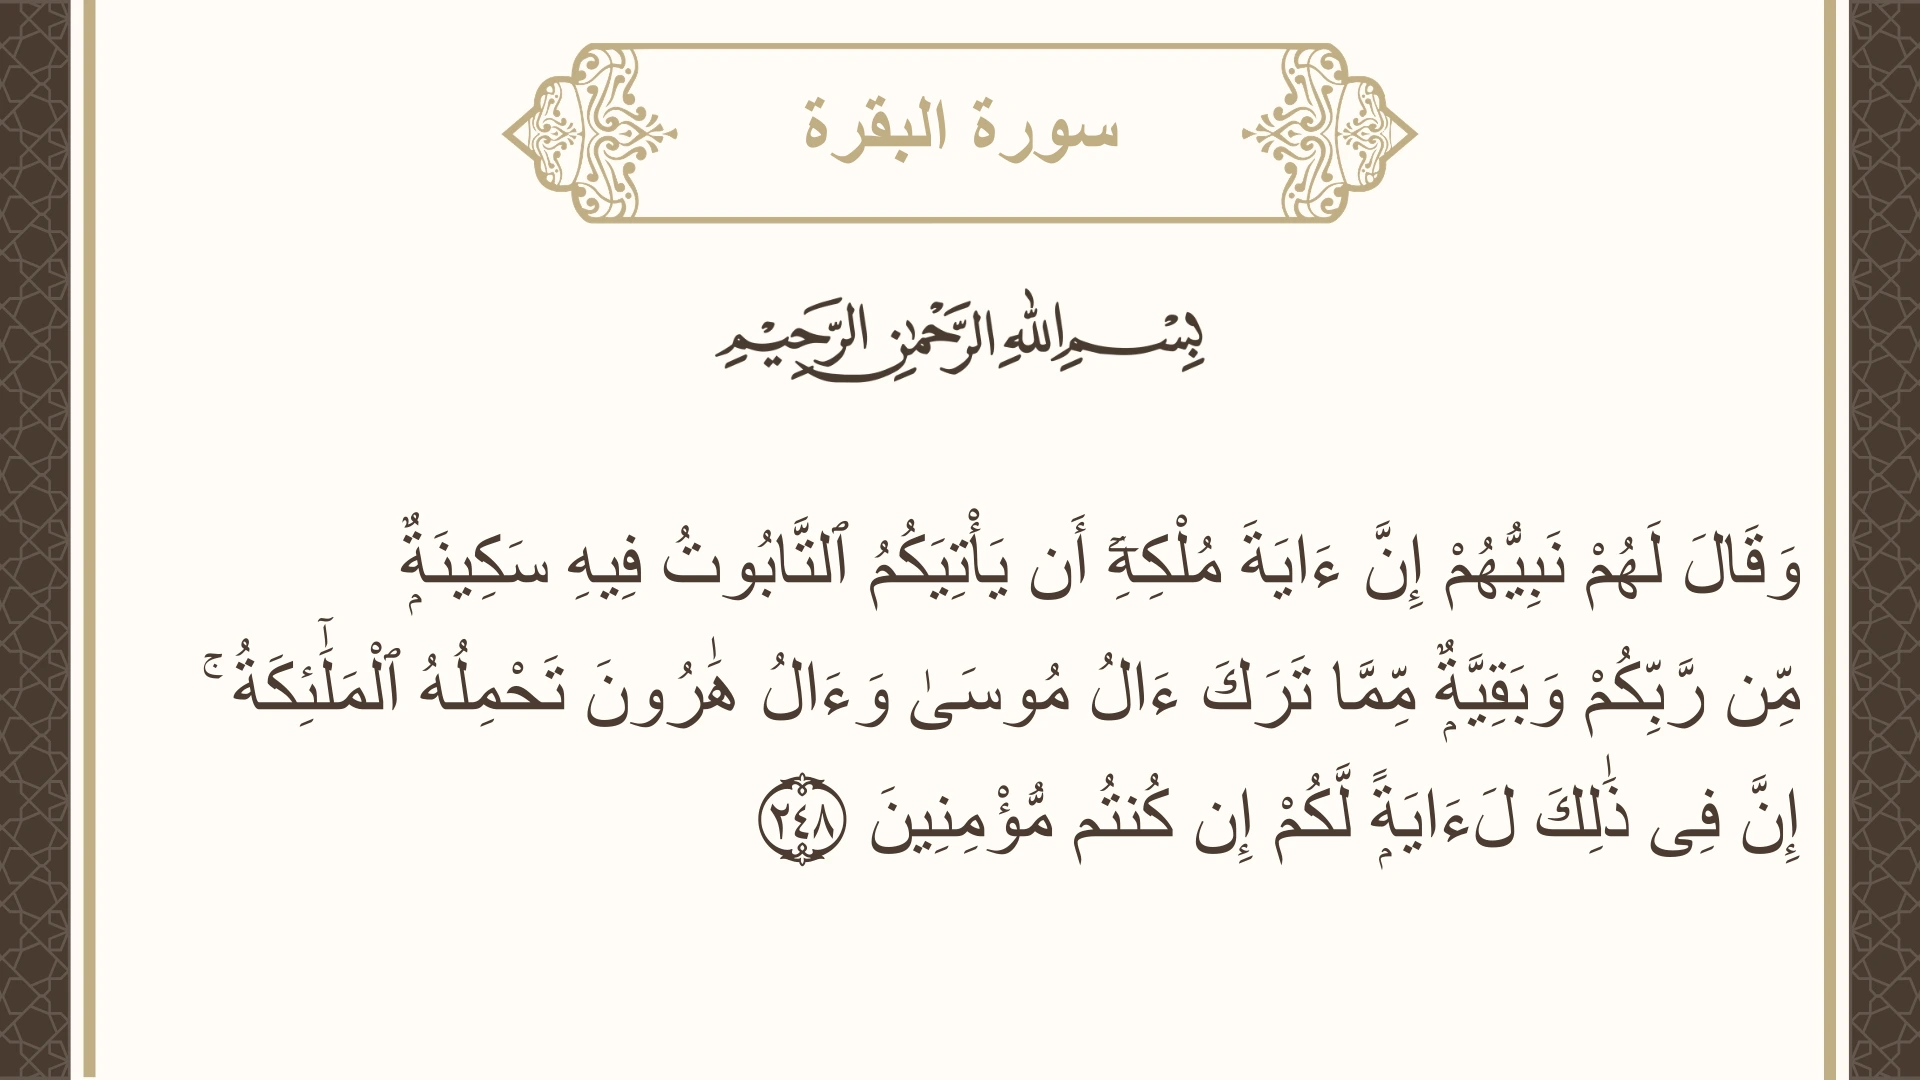 سورة البقرة
بِسْمِ اللهِ الرَّحْمٰنِ الرَّحِيْمِ
وَقَالَ لَهُمْ نَبِيُّهُمْ إِنَّ ءَايَةَ مُلْكِهِۦٓ أَن يَأْتِيَكُمُ ٱلتَّابُوتُ فِيهِ سَكِينَةٌۭ
مِّن رَّبِّكُمْ وَبَقِيَّةٌۭ مِّمَّا تَرَكَ ءَالُ مُوسَىٰ وَءَالُ هَٰرُونَ تَحْمِلُهُ ٱلْمَلَٰٓئِكَةُ ۚ
إِنَّ فِى ذَٰلِكَ لَءَايَةًۭ لَّكُمْ إِن كُنتُم مُّؤْمِنِينَ ٢٤٨